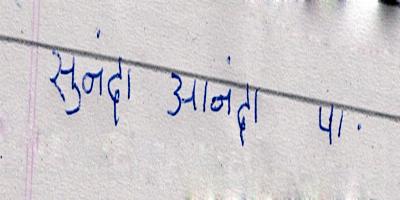 सुनंदा आनंदा पा.